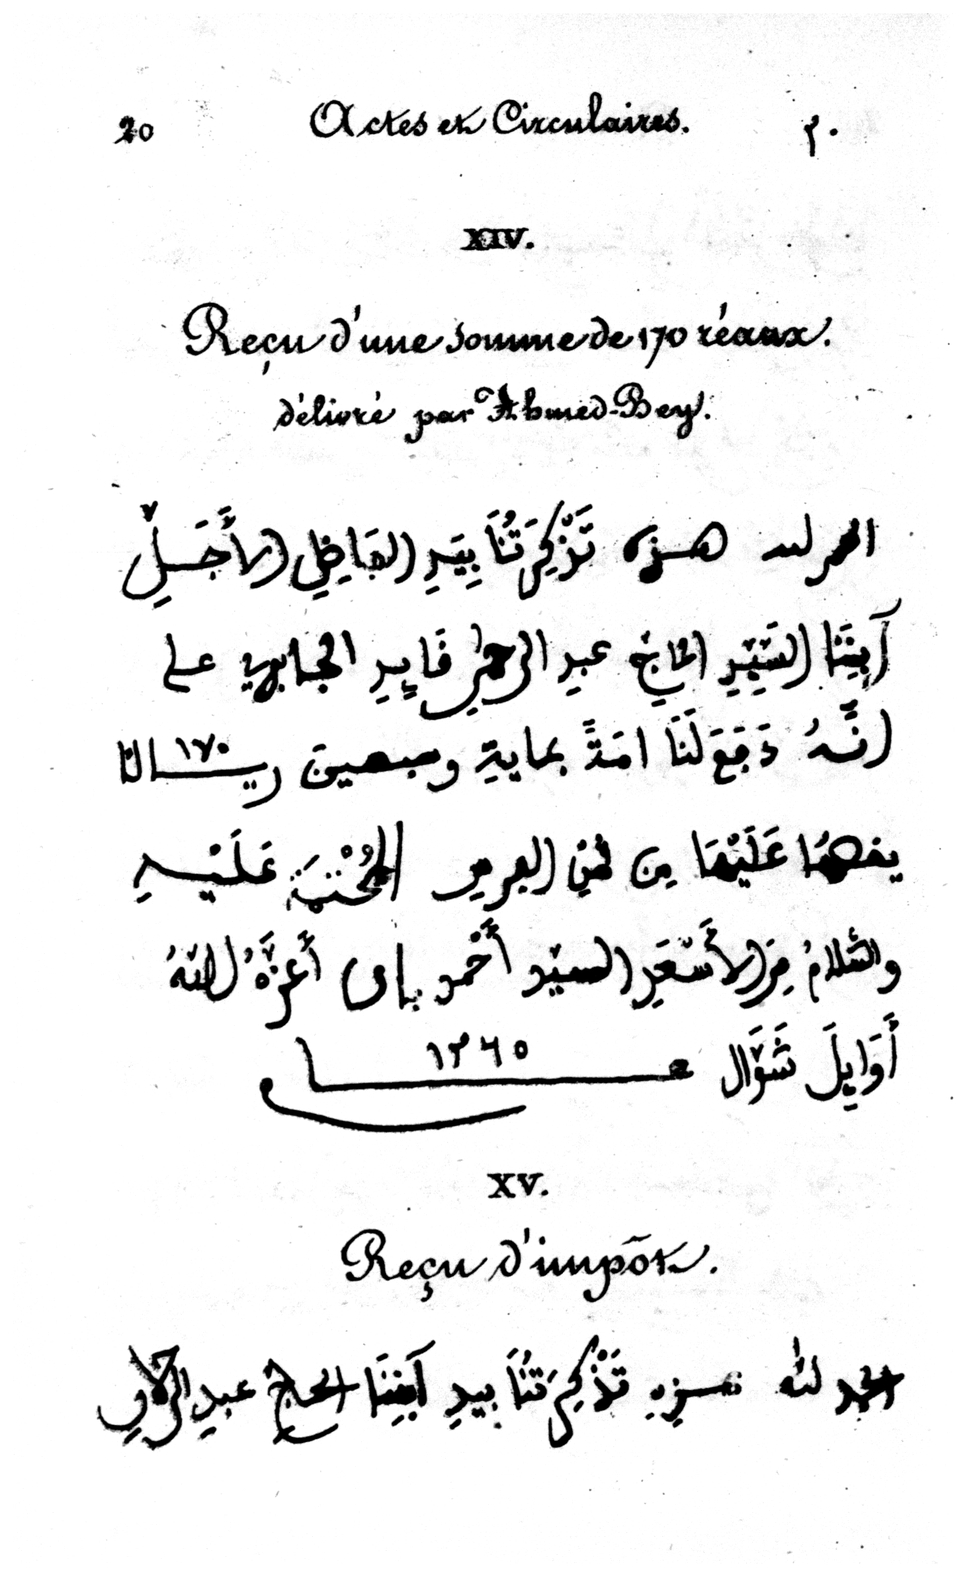 20 Actes et Circulaires. ٢٠
XIV.
Reçu d'une somme de 170 réaux.
délivré par Ahmed-Bey.
الحمد لله هذه تَذْكِرَتُنَا بِيَدِ الفَاضِلِ الأَجَلِّ
آبِنِنَا السَّيِّدِ الحَاجِّ عبدِ الرحمٰنِ قَايِدِ على
انَّهُ دَفَعَ لَنَا بماية وسبعين ١٧٠ ريالا
عَلَيْهَا مِن عَلَيْهِ
والسَّلَامُ مِنَ الأَسْعَدِ السيّد أَحْمد باى أَعَزَّهُ اللّهُ
أَوَايِلَ شَوَّال عام ١٢٦٥
XV.
Reçu d'impôt.
الحمد لله هذه تَذْكِرَتُنَا بيدِ آبْنِنَا الحاج عبدِ